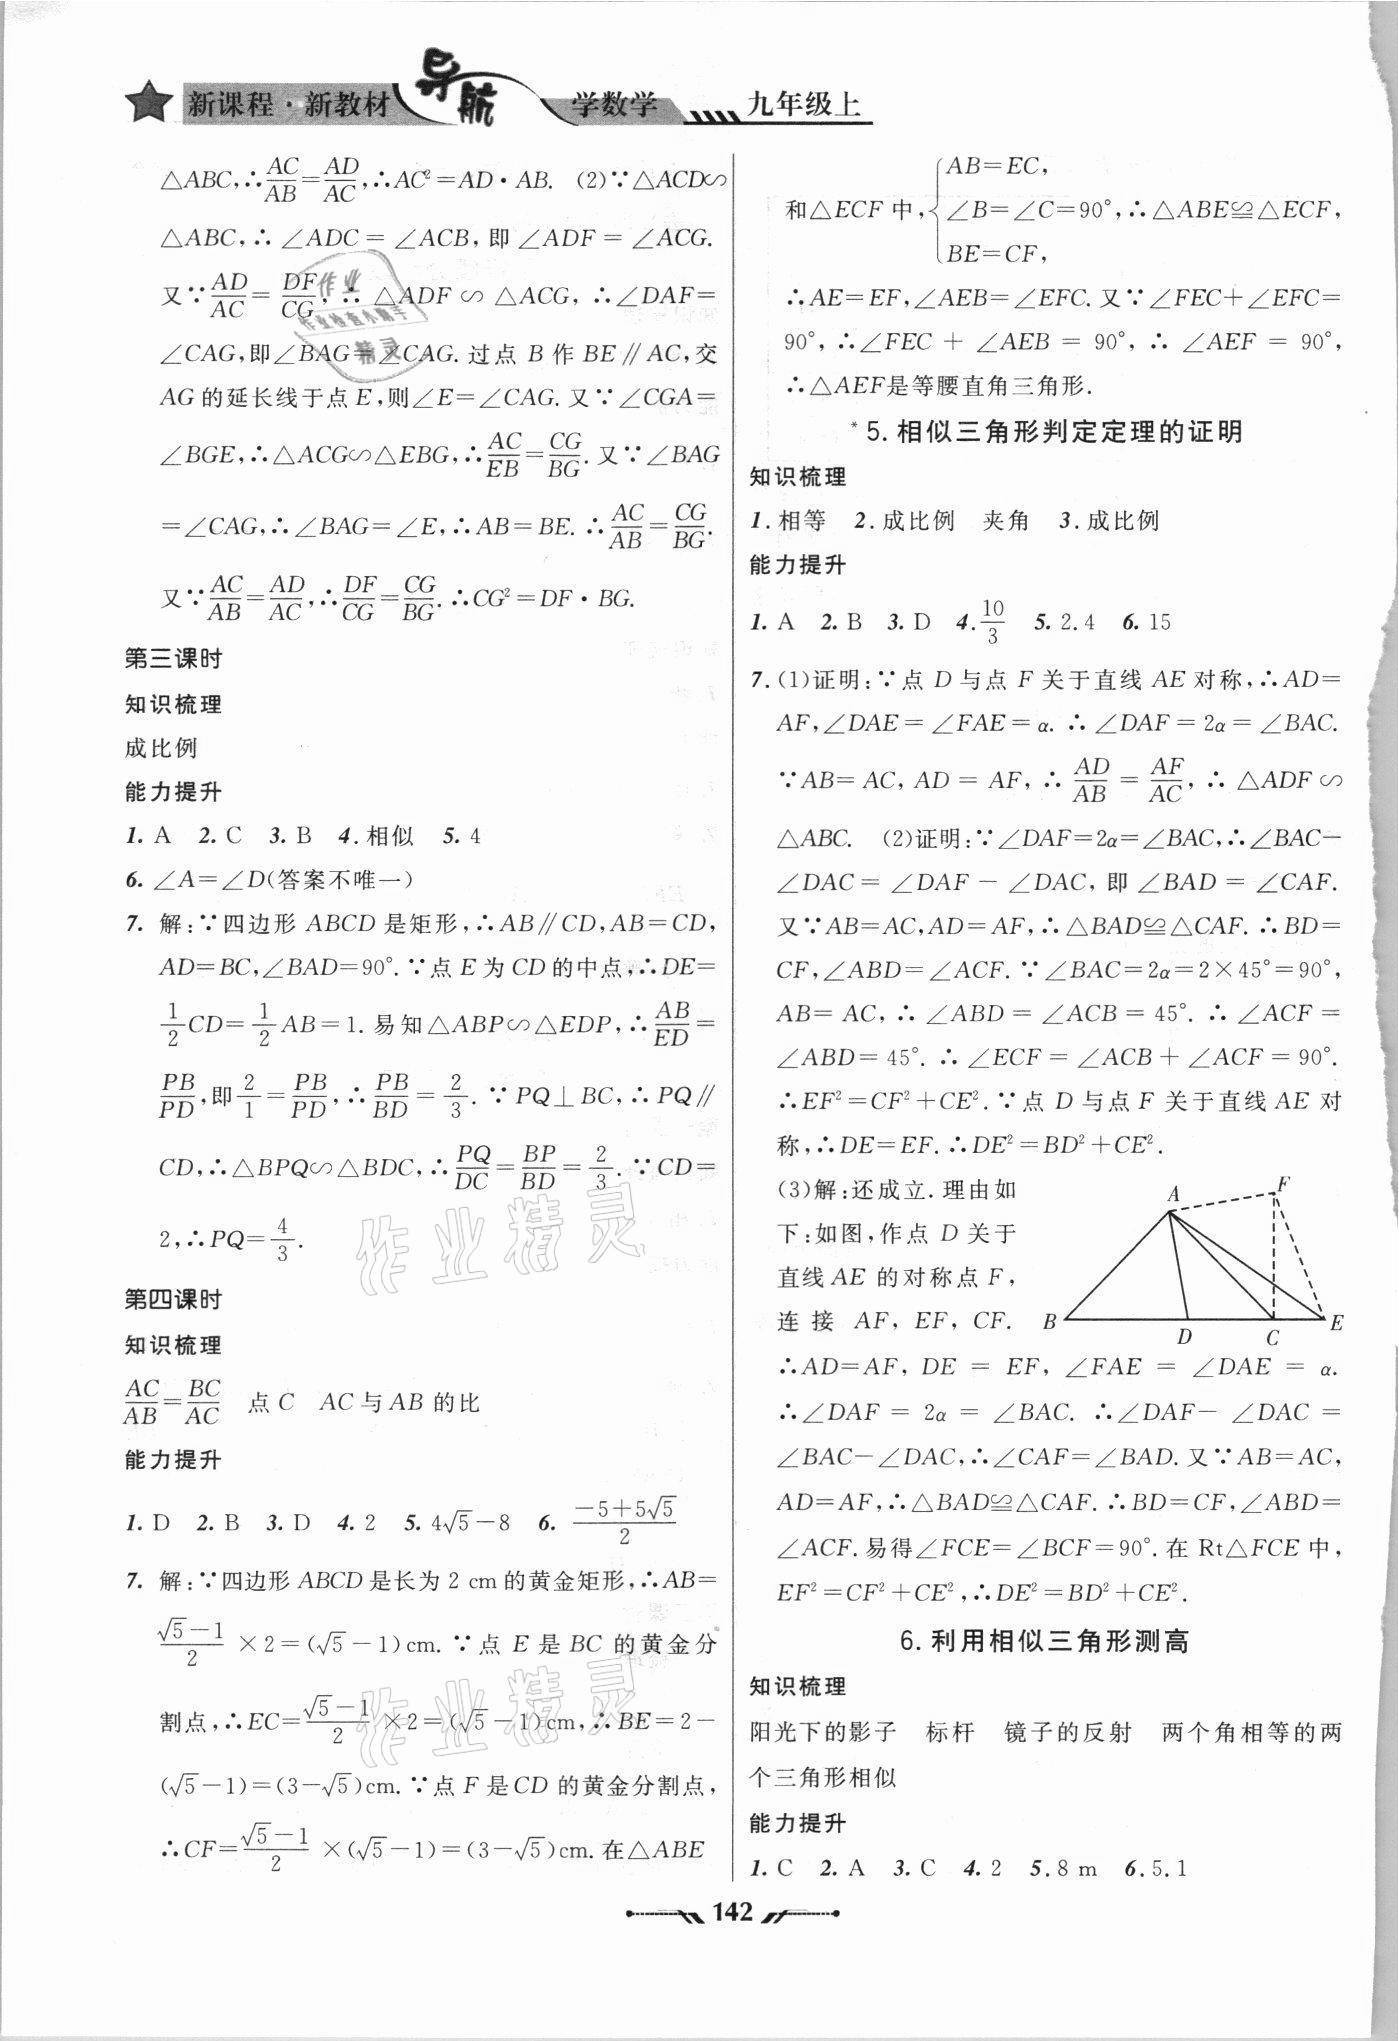 新课程·新教材 导航 学数学 九年级上
△ABC,∴AC/AB=AD/AC,∴AC²=AD·AB. (2)∵△ACD∽
△ABC,∴∠ADC=∠ACB,即∠ADF=∠ACG.
又∵AD/AC=DF/CG,∴△ADF∽△ACG,∴∠DAF=
∠CAG,即∠BAG=∠CAG.过点B作BE∥AC,交
AG的延长线于点E,则∠E=∠CAG.又∵∠CGA=
∠BGE,∴△ACG∽△EBG,∴AC/EB=CG/BG.又∵∠BAG
=∠CAG,∴∠BAG=∠E,∴AB=BE.∴AC/AB=CG/BG.
又∵AC/AB=AD/AC,∴DF/CG=CG/BG.∴CG²=DF·BG.
第三课时
知识梳理
成比例
能力提升
1. A 2. C 3. B 4.相似 5. 4
6. ∠A=∠D(答案不唯一)
7. 解:∵四边形ABCD是矩形,∴AB∥CD,AB=CD,
AD=BC,∠BAD=90°.∵点E为CD的中点,∴DE=
1/2CD=1/2AB=1.易知△ABP∽△EDP,∴AB/ED=
PB/PD,即2/1=PB/PD,∴PB/BD=2/3.∵PQ⊥BC,∴PQ∥
CD,∴△BPQ∽△BDC,∴PQ/DC=BP/BD=2/3.∵CD=
2,∴PQ=4/3.
第四课时
知识梳理
AC/AB=BC/AC 点C AC与AB的比
能力提升
1. D 2. B 3. D 4. 2 5. 4√5-8 6. (-5+5√5)/2
7. 解:∵四边形ABCD是长为2 cm的黄金矩形,∴AB=
(√5-1)/2×2=(√5-1)cm.∵点E是BC的黄金分
割点,∴EC=(√5-1)/2×2=(√5-1)cm,∴BE=2-
(√5-1)=(3-√5)cm.∵点F是CD的黄金分割点,
∴CF=(√5-1)/2×(√5-1)=(3-√5)cm.在△ABE
和△ECF中,{AB=EC,
∠B=∠C=90°,∴△ABE≌△ECF,
BE=CF,
∴AE=EF,∠AEB=∠EFC.又∵∠FEC+∠EFC=
90°,∴∠FEC+∠AEB=90°,∴∠AEF=90°,
∴△AEF是等腰直角三角形.
*5.相似三角形判定定理的证明
知识梳理
1.相等 2.成比例 夹角 3.成比例
能力提升
1. A 2. B 3. D 4. 10/3 5. 2.4 6. 15
7. (1)证明:∵点D与点F关于直线AE对称,∴AD=
AF,∠DAE=∠FAE=α.∴∠DAF=2α=∠BAC.
∵AB=AC,AD=AF,∴AD/AB=AF/AC,∴△ADF∽
△ABC. (2)证明:∵∠DAF=2α=∠BAC,∴∠BAC-
∠DAC=∠DAF-∠DAC,即∠BAD=∠CAF.
又∵AB=AC,AD=AF,∴△BAD≌△CAF.∴BD=
CF,∠ABD=∠ACF.∵∠BAC=2α=2×45°=90°,
AB=AC,∴∠ABD=∠ACB=45°.∴∠ACF=
∠ABD=45°.∴∠ECF=∠ACB+∠ACF=90°.
∴EF²=CF²+CE².∵点D与点F关于直线AE对
称,∴DE=EF.∴DE²=BD²+CE².
(3)解:还成立.理由如
下:如图,作点D关于
直线AE的对称点F,
连接AF,EF,CF.
A F B D C E
∴AD=AF,DE=EF,∠FAE=∠DAE=α.
∴∠DAF=2α=∠BAC.∴∠DAF-∠DAC=
∠BAC-∠DAC,∴∠CAF=∠BAD.又∵AB=AC,
AD=AF,∴△BAD≌△CAF.∴BD=CF,∠ABD=
∠ACF.易得∠FCE=∠BCF=90°.在Rt△FCE中,
EF²=CF²+CE²,∴DE²=BD²+CE².
6.利用相似三角形测高
知识梳理
阳光下的影子 标杆 镜子的反射 两个角相等的两
个三角形相似
能力提升
1. C 2. A 3. C 4. 2 5. 8 m 6. 5.1
142
作业
作业检查小助手
精灵
作业精灵
作业精灵